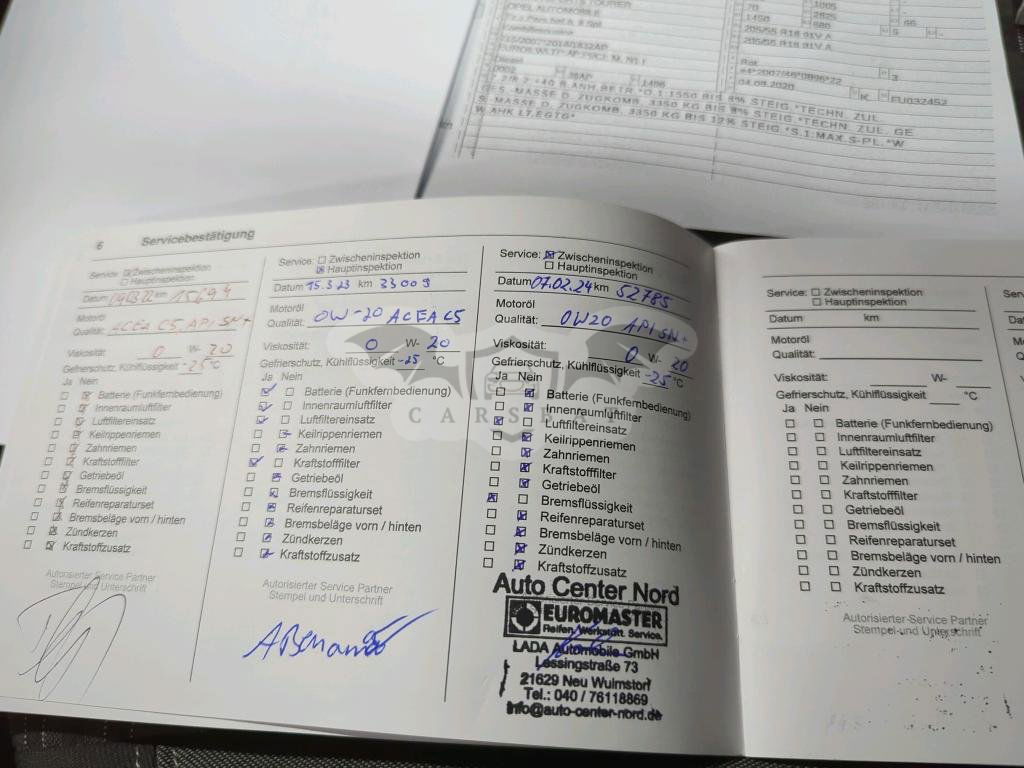 OPEL AUTOMOBILE
Diesel
205/55 R16 91V A
205/55 R16 91V A
Rot
04.09.2020
K
EU032452
GES.-MASSE D. ZUGKOMB. 3350 KG BIS 8% STEIG.*TECHN. ZUL.
S.-MASSE D. ZUGKOMB. 3350 KG BIS 12% STEIG.*S.1:MAX.S-PL.*W
W.AHK LT.EGTG*
6 Servicebestätigung
Service: Zwischeninspektion
Hauptinspektion
Datum km
Motoröl
Qualität: ACEA C5, API SN+
Viskosität: 0 W- 20
Gefrierschutz, Kühlflüssigkeit -25 °C
Ja Nein
Batterie (Funkfernbedienung)
Innenraumluftfilter
Luftfiltereinsatz
Keilrippenriemen
Zahnriemen
Kraftstofffilter
Getriebeöl
Bremsflüssigkeit
Reifenreparaturset
Bremsbeläge vorn / hinten
Zündkerzen
Kraftstoffzusatz
Autorisierter Service Partner
Stempel und Unterschrift
Service: Zwischeninspektion
Hauptinspektion
Datum 15.3.23 km 33009
Motoröl
Qualität: 0W-20 ACEA C5
Viskosität: 0 W- 20
Gefrierschutz, Kühlflüssigkeit -25 °C
Ja Nein
Batterie (Funkfernbedienung)
Innenraumluftfilter
Luftfiltereinsatz
Keilrippenriemen
Zahnriemen
Kraftstofffilter
Getriebeöl
Bremsflüssigkeit
Reifenreparaturset
Bremsbeläge vorn / hinten
Zündkerzen
Kraftstoffzusatz
Autorisierter Service Partner
Stempel und Unterschrift
Service: Zwischeninspektion
Hauptinspektion
Datum 07.02.24 km 52785
Motoröl
Qualität: 0W20 API SN+
Viskosität: 0 W- 20
Gefrierschutz, Kühlflüssigkeit -25 °C
Ja Nein
Batterie (Funkfernbedienung)
Innenraumluftfilter
Luftfiltereinsatz
Keilrippenriemen
Zahnriemen
Kraftstofffilter
Getriebeöl
Bremsflüssigkeit
Reifenreparaturset
Bremsbeläge vorn / hinten
Zündkerzen
Kraftstoffzusatz
Auto Center Nord
EUROMASTER
Reifen. Werkstatt. Service.
LADA Automobile GmbH
Lessingstraße 73
21629 Neu Wulmstorf
Tel.: 040 / 76118869
info@auto-center-nord.de
Service: Zwischeninspektion
Hauptinspektion
Datum km
Motoröl
Qualität:
Viskosität: W-
Gefrierschutz, Kühlflüssigkeit °C
Ja Nein
Batterie (Funkfernbedienung)
Innenraumluftfilter
Luftfiltereinsatz
Keilrippenriemen
Zahnriemen
Kraftstofffilter
Getriebeöl
Bremsflüssigkeit
Reifenreparaturset
Bremsbeläge vorn / hinten
Zündkerzen
Kraftstoffzusatz
Autorisierter Service Partner
Stempel und Unterschrift